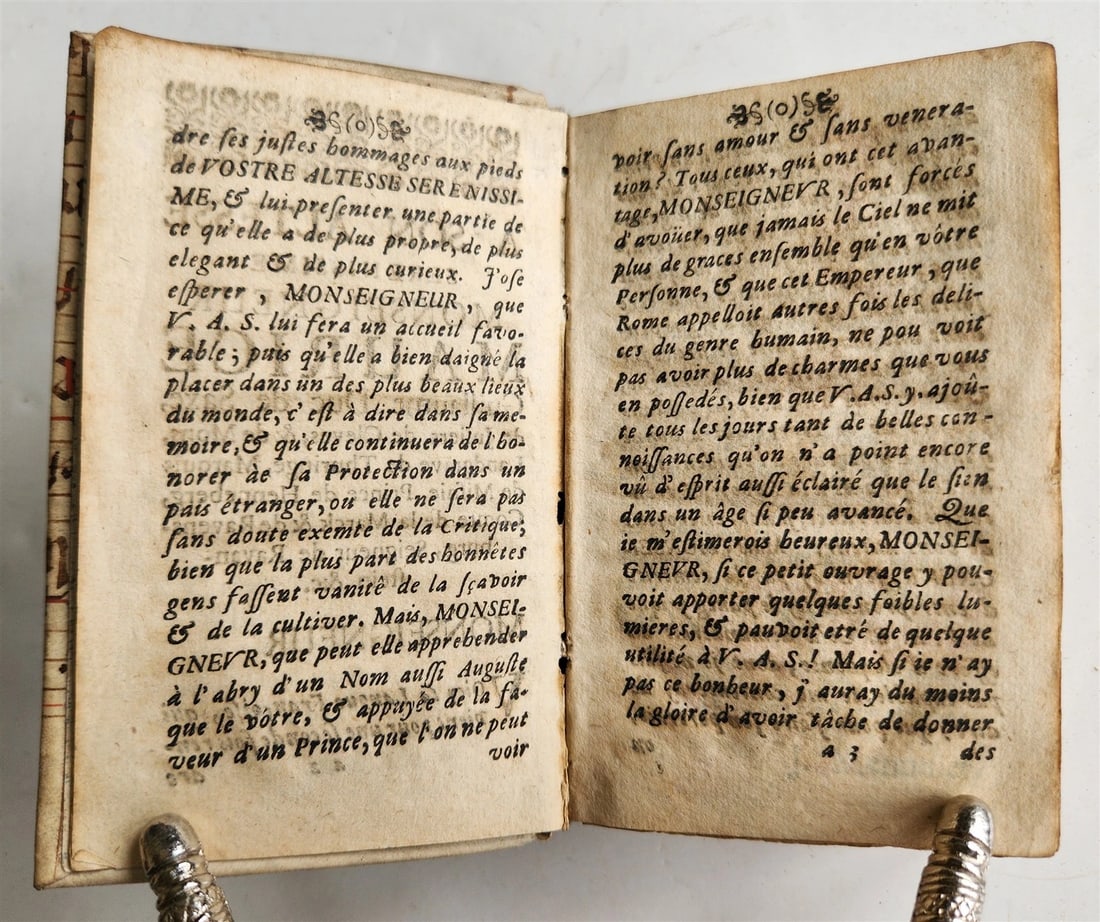 (o)
dre ſes juſtes hommages aux pieds
de VOSTRE ALTESSE SERENISSI-
ME, & lui preſenter une partie de
ce qu'elle a de plus propre, de plus
elegant & de plus curieux. J'oſe
eſperer, MONSEIGNEUR, que
V. A. S. lui fera un accueil favo-
rable; puis qu'elle a bien daigné la
placer dans un des plus beaux lieux
du monde, c'eſt à dire dans ſa me-
moire, & qu'elle continuera de l'ho-
norer de ſa Protection dans un
païs étranger, ou elle ne ſera pas
ſans doute exemte de la Critique;
bien que la plus part des honnêtes
gens faſſent vanité de la ſçavoir
& de la cultiver. Mais, MONSEI-
GNEVR, que peut elle apprehender
à l'abry d'un Nom auſſi Auguſte
que le vótre, & appuyée de la fa-
veur d'un Prince, que l'on ne peut
voir
(o)
voir ſans amour & ſans venera-
tion? Tous ceux, qui ont cet avan-
tage, MONSEIGNEVR, ſont forcés
d'avoüer, que jamais le Ciel ne mit
plus de graces enſemble qu'en vótre
Perſonne, & que cet Empereur, que
Rome appelloit autres fois les deli-
ces du genre humain, ne pou voit
pas avoir plus de charmes que vous
en poſſedés, bien que V. A. S. y. ajoû-
te tous les jours tant de belles con-
noiſſances qu'on n'a point encore
vû d'eſprit auſſi éclairé que le ſien
dans un âge ſi peu avancé. Que
ie m'eſtimerois heureux, MONSEI-
GNEVR, ſi ce petit ouvrage y pou-
voit apporter quelques foibles lu-
mieres, & pauvoit etré de quelque
utilité à V. A. S.! Mais ſi ie n'ay
pas ce bonheur, j'auray du moins
la gloire d'avoir tâche de donner
a 3 des